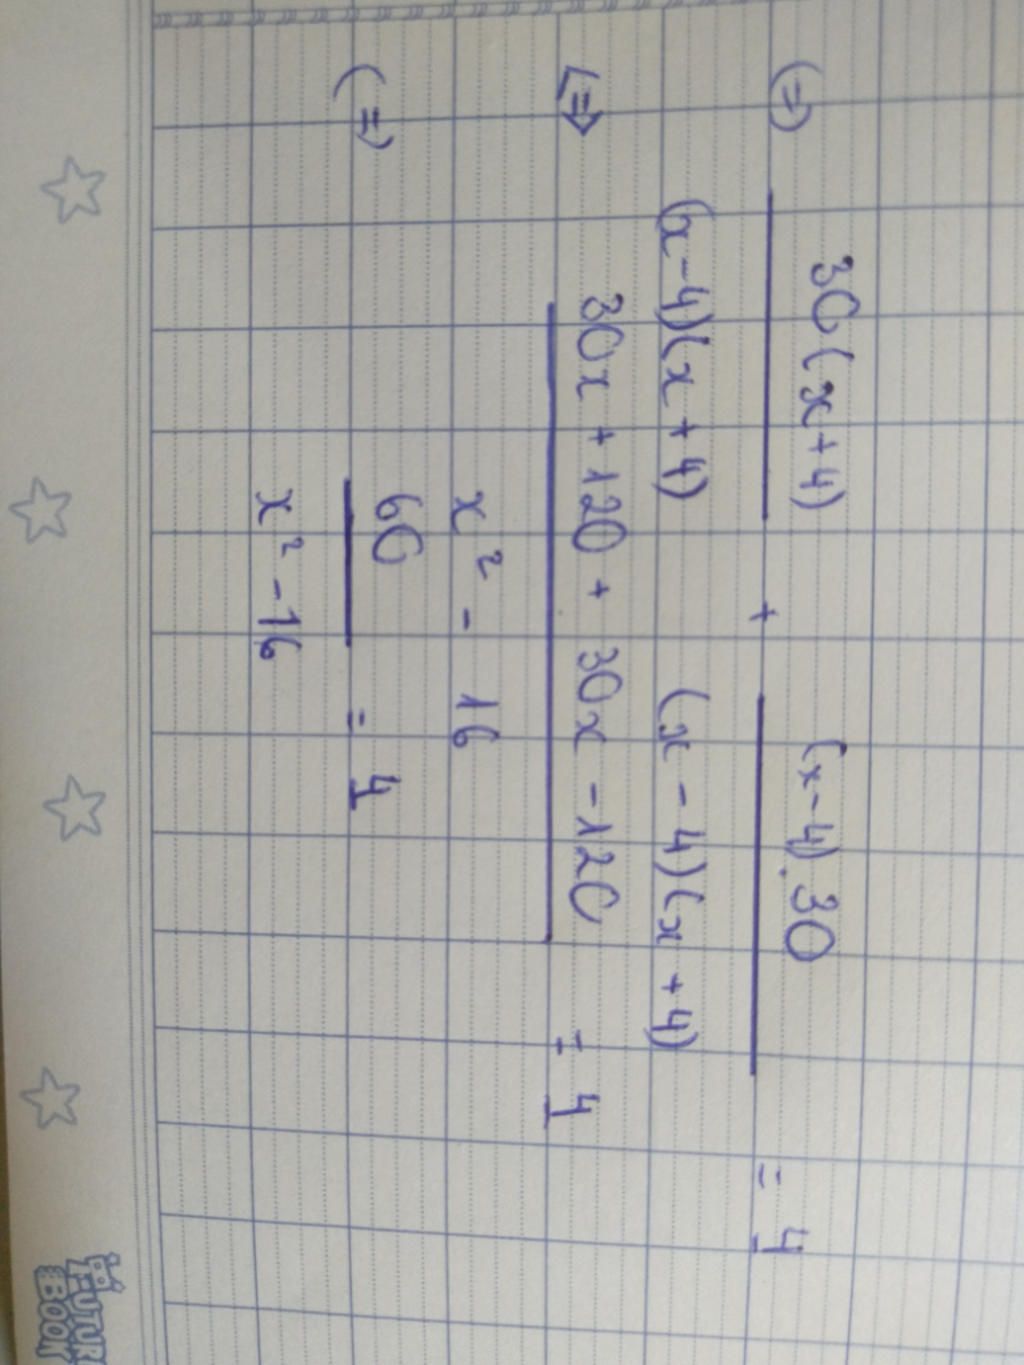 30(x+4) (x-4).30
(=) + = 4
(x-4)(x+4) (x-4)(x+4)
30x+120+30x-120
(=) = 4
x² - 16
60
(=) = 4
x²-16
FUTURE
BOOK